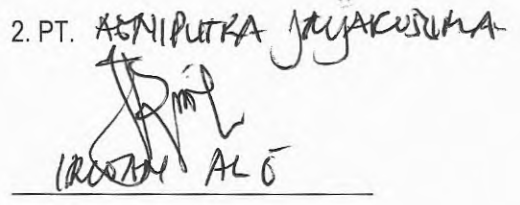 2. PT. AGNIPUTRA JAYAKUSUMA
IRWAN AL